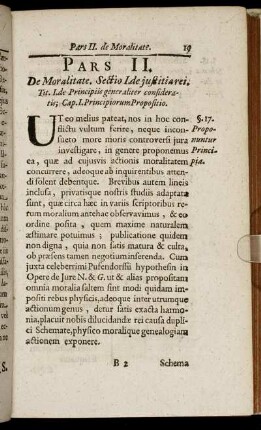 Pars II. de Moralitate. 19
PARS II.
De Moralitate. Sectio I. de justitia rei.
Tit. I. de Principiis generaliter considera-
tis; Cap. I. Principiorum Propositio.
UT eo melius pateat, nos in hoc con- §. 17.
flictu vultum ferire, neque incon- Propo-
sueto more moris controversi jura nuntur
investigare, in genere proponemus Princi-
ea, quæ ad cujusvis actionis moralitatem piæ.
concurrere, adeoque ab inquirentibus atten-
di solent debentque. Brevibus autem lineis
inclusa, privatisque nostris studiis adaptata
sunt, quæ circa hæc in variis scriptoribus re-
rum moralium antehac observavimus, & eo
ordine posita, quem maxime naturalem
æstimare potuimus; publicatione quidem
non digna, quia non satis matura & culta,
ob præsens tamen negotium inserenda. Cum
juxta celeberrimi Pufendorffii hypothesin in
Opere de Jure N. & G. ut & alias propositam
omnia moralia saltem sint modi quidam im-
positi rebus physicis, adeoque inter utrumque
actionum genus, detur satis exacta harmo-
nia, placuit nobis dilucidandæ rei causa dupli-
ci Schemate, physico moralique genealogiam
actionem exponere.
B 2 Schema